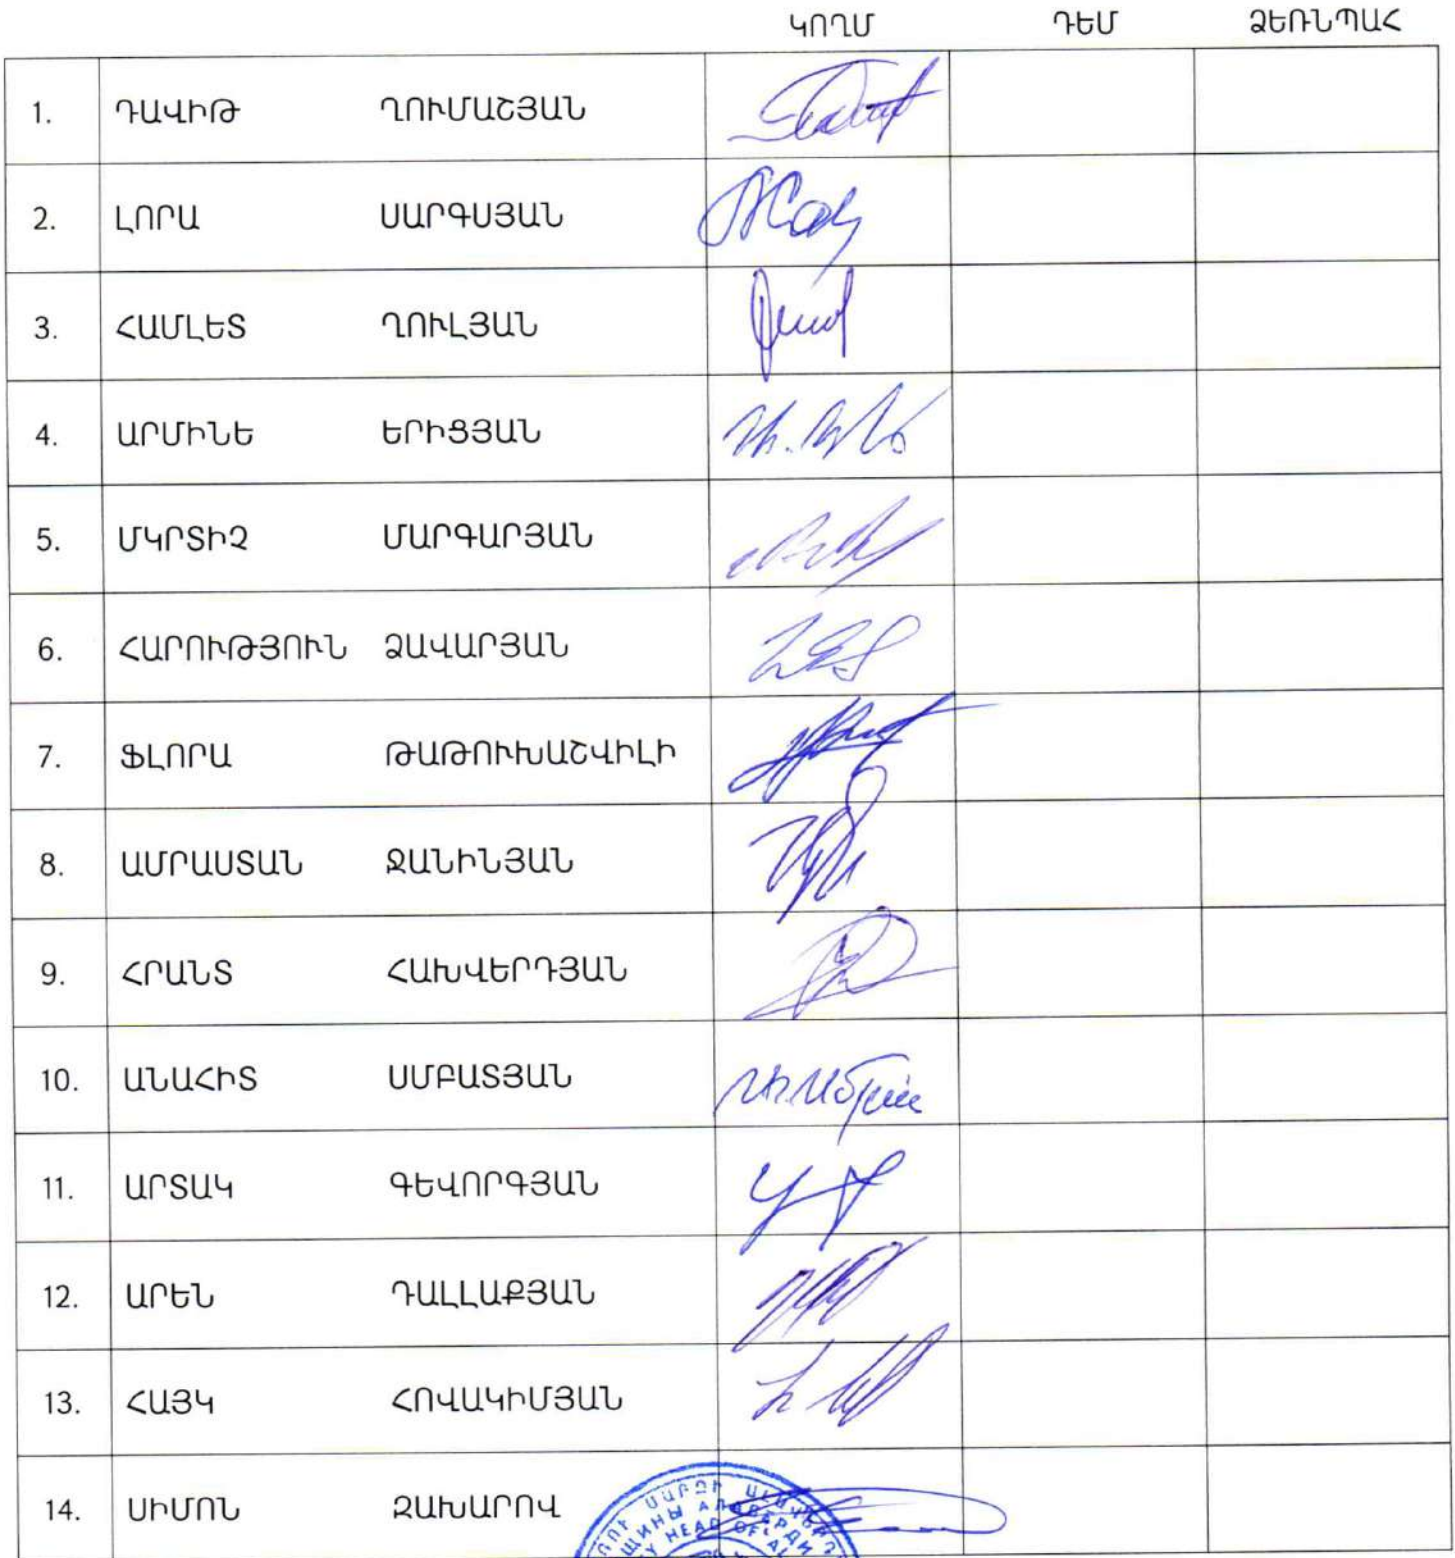 ԿՈՂՄ ԴԵՄ ՁԵՌՆՊԱՀ
1. ԴԱՎԻԹ ՂՈՒՄԱՇՅԱՆ
2. ԼՈՐԱ ՍԱՐԳՍՅԱՆ
3. ՀԱՄԼԵՏ ՂՈՒԼՅԱՆ
4. ԱՐՄԻՆԵ ԵՐԻՑՅԱՆ
5. ՄԿՐՏԻՉ ՄԱՐԳԱՐՅԱՆ
6. ՀԱՐՈՒԹՅՈՒՆ ՁԱՎԱՐՅԱՆ
7. ՖԼՈՐԱ ԹԱԹՈՒԽԱՇՎԻԼԻ
8. ԱՄՐԱՍՏԱՆ ՋԱՆԻՆՅԱՆ
9. ՀՐԱՆՏ ՀԱԽՎԵՐԴՅԱՆ
10. ԱՆԱՀԻՏ ՍՄԲԱՏՅԱՆ
11. ԱՐՏԱԿ ԳԵՎՈՐԳՅԱՆ
12. ԱՐԵՆ ԴԱԼԼԱՔՅԱՆ
13. ՀԱՅԿ ՀՈՎԱԿԻՄՅԱՆ
14. ՍԻՄՈՆ ԶԱԽԱՐՈՎ
ՄԱՐԶԻ
HEAD OF